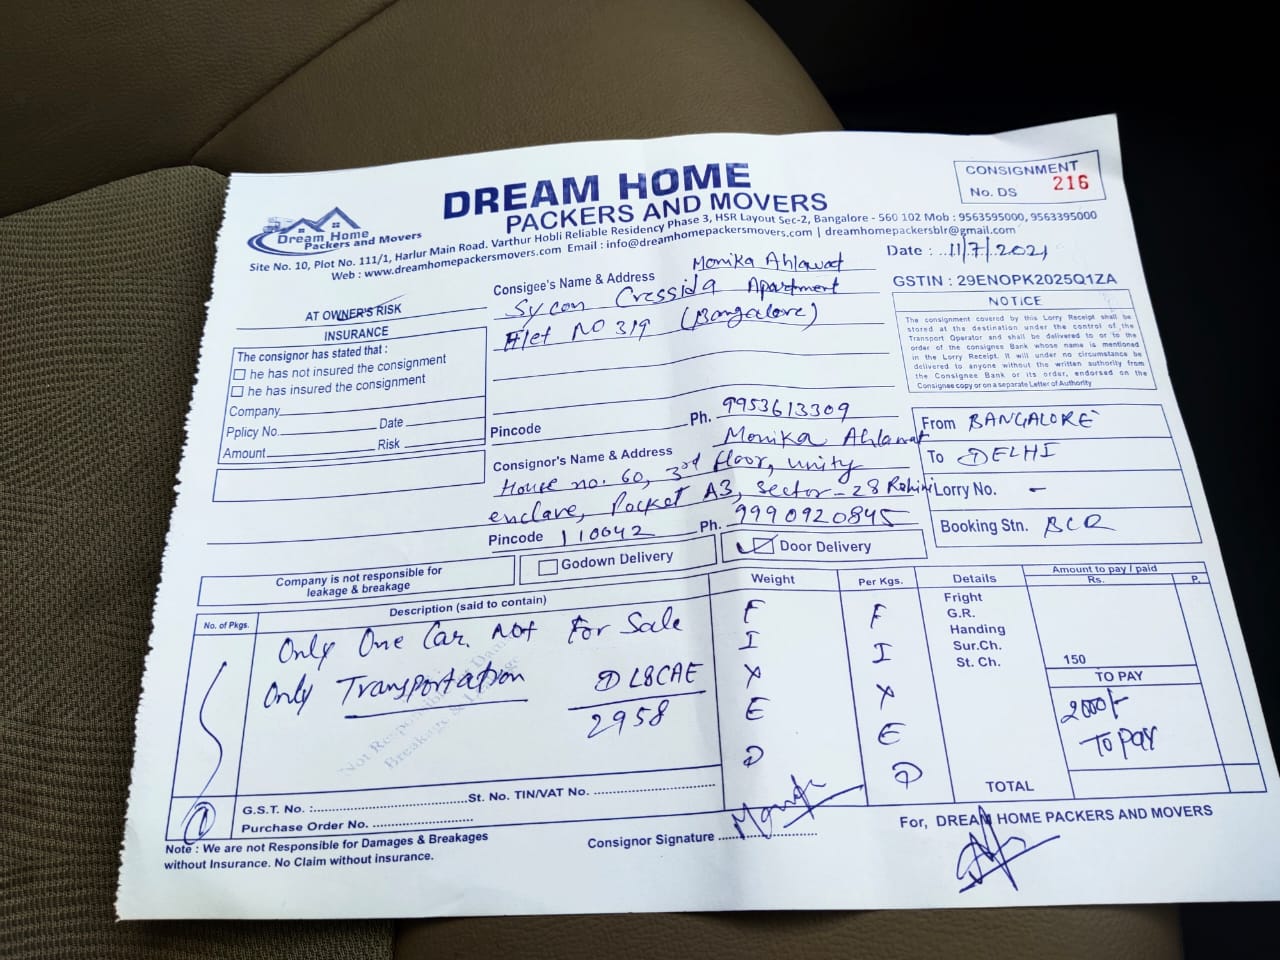 DREAM HOME
PACKERS AND MOVERS
CONSIGNMENT
No. DS 216
Dream Home
Packers and Movers
Site No. 10, Plot No. 111/1, Harlur Main Road. Varthur Hobli Reliable Residency Phase 3, HSR Layout Sec-2, Bangalore - 560 102 Mob : 9563595000, 9563395000
Web : www.dreamhomepackersmovers.com Email : info@dreamhomepackersmovers.com | dreamhomepackersblr@gmail.com
Date : 11/7/2021
GSTIN : 29ENOPK2025Q1ZA
NOTICE
The consignment covered by this Lorry Receipt shall be
stored at the destination under the control of the
Transport Operator and shall be delivered to or to the
order of the consignee Bank whose name is mentioned
in the Lorry Receipt. It will under no circumstance be
delivered to anyone without the written authority from
the Consignee Bank or its order, endorsed on the
Consignee copy or on a separate Letter of Authority
AT OWNER'S RISK
INSURANCE
The consignor has stated that :
he has not insured the consignment
he has insured the consignment
Company
Pplicy No. Date
Amount Risk
Consigee's Name & Address Monika Ahlawat
Sycon Cressida Apartment
Flet No 319 (Bangalore)
Pincode Ph. 9953613309
Consignor's Name & Address Monika Ahlawat
House no. 60, 3rd floor, unity
enclave, Pocket A3, Sector-28 Rohini
Pincode 110042 Ph. 9990920845
From BANGALORE
To DELHI
Lorry No. -
Booking Stn. BCR
Company is not responsible for
leakage & breakage
Godown Delivery
Door Delivery
No. of Pkgs.
Description (said to contain)
Weight
Per Kgs.
Details
Amount to pay / paid
Rs. P.
Only One Car. Not For Sale
Only Transportation DL8CAE
2958
Not Responsible
Breakage & Leakage
F
I
X
E
D
F
I
X
E
D
Fright
G.R.
Handing
Sur.Ch.
St. Ch.
150
TO PAY
2000/-
To Pay
TOTAL
1
G.S.T. No. : St. No. TIN/VAT No.
Purchase Order No.
Note : We are not Responsible for Damages & Breakages
without Insurance. No Claim without insurance.
Consignor Signature
For, DREAM HOME PACKERS AND MOVERS